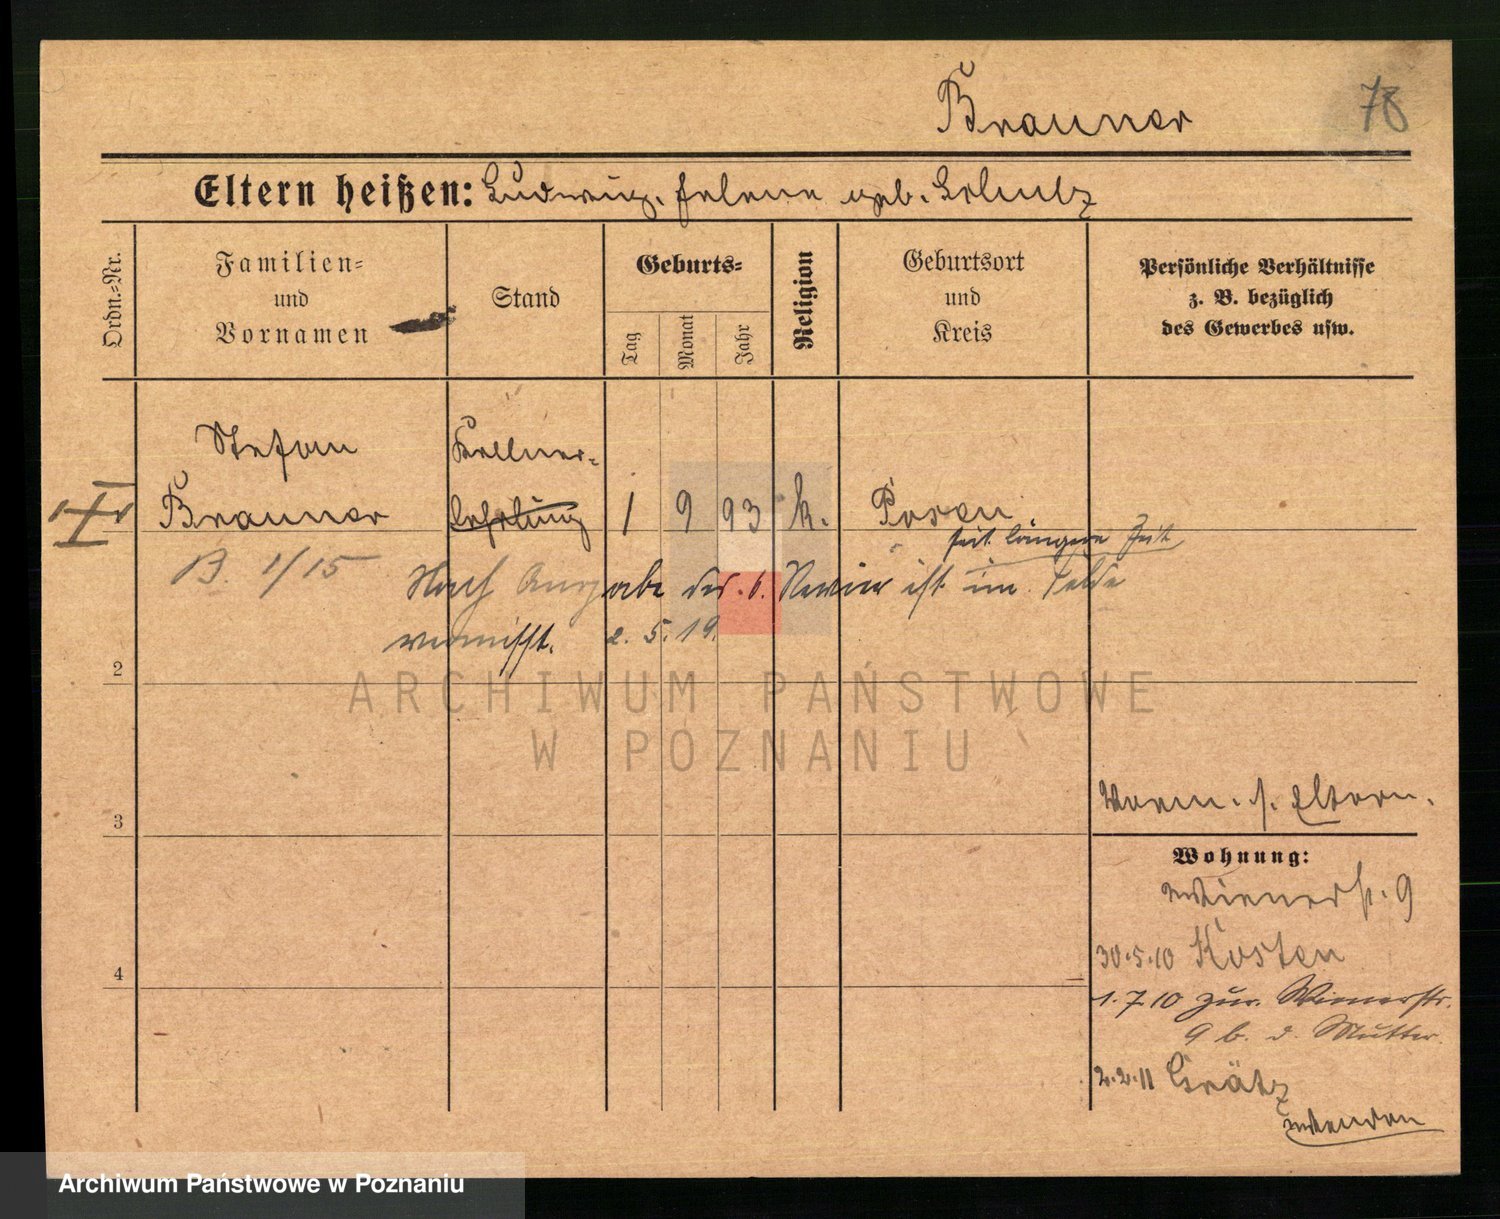 Brauner
78
Eltern heißen: Ludwig. Helene geb. Schulz
Ordn.-Nr.
Familien-
und
Vornamen
Stand
Geburts-
Tag
Monat
Jahr
Religion
Geburtsort
und
Kreis
Persönliche Verhältnisse
z. B. bezüglich
des Gewerbes usw.
Stefan Kellner-
1 Brauner Lehrling 1 9 93 k. Posen
B. 1/15
seit längere Zeit
Nach Angabe des 6. Revier ist im Felde
vermisst. 2. 5. 19.
2
ARCHIWUM PAŃSTWOWE
W POZNANIU
3
Eltern.
Wohnung:
Wienerstr. 9
4
30.5.10 Kosten
1.7.10 zur. Wienerstr.
9 b. d. Mutter
2.2.11 Grätz
wenden
Archiwum Państwowe w Poznaniu